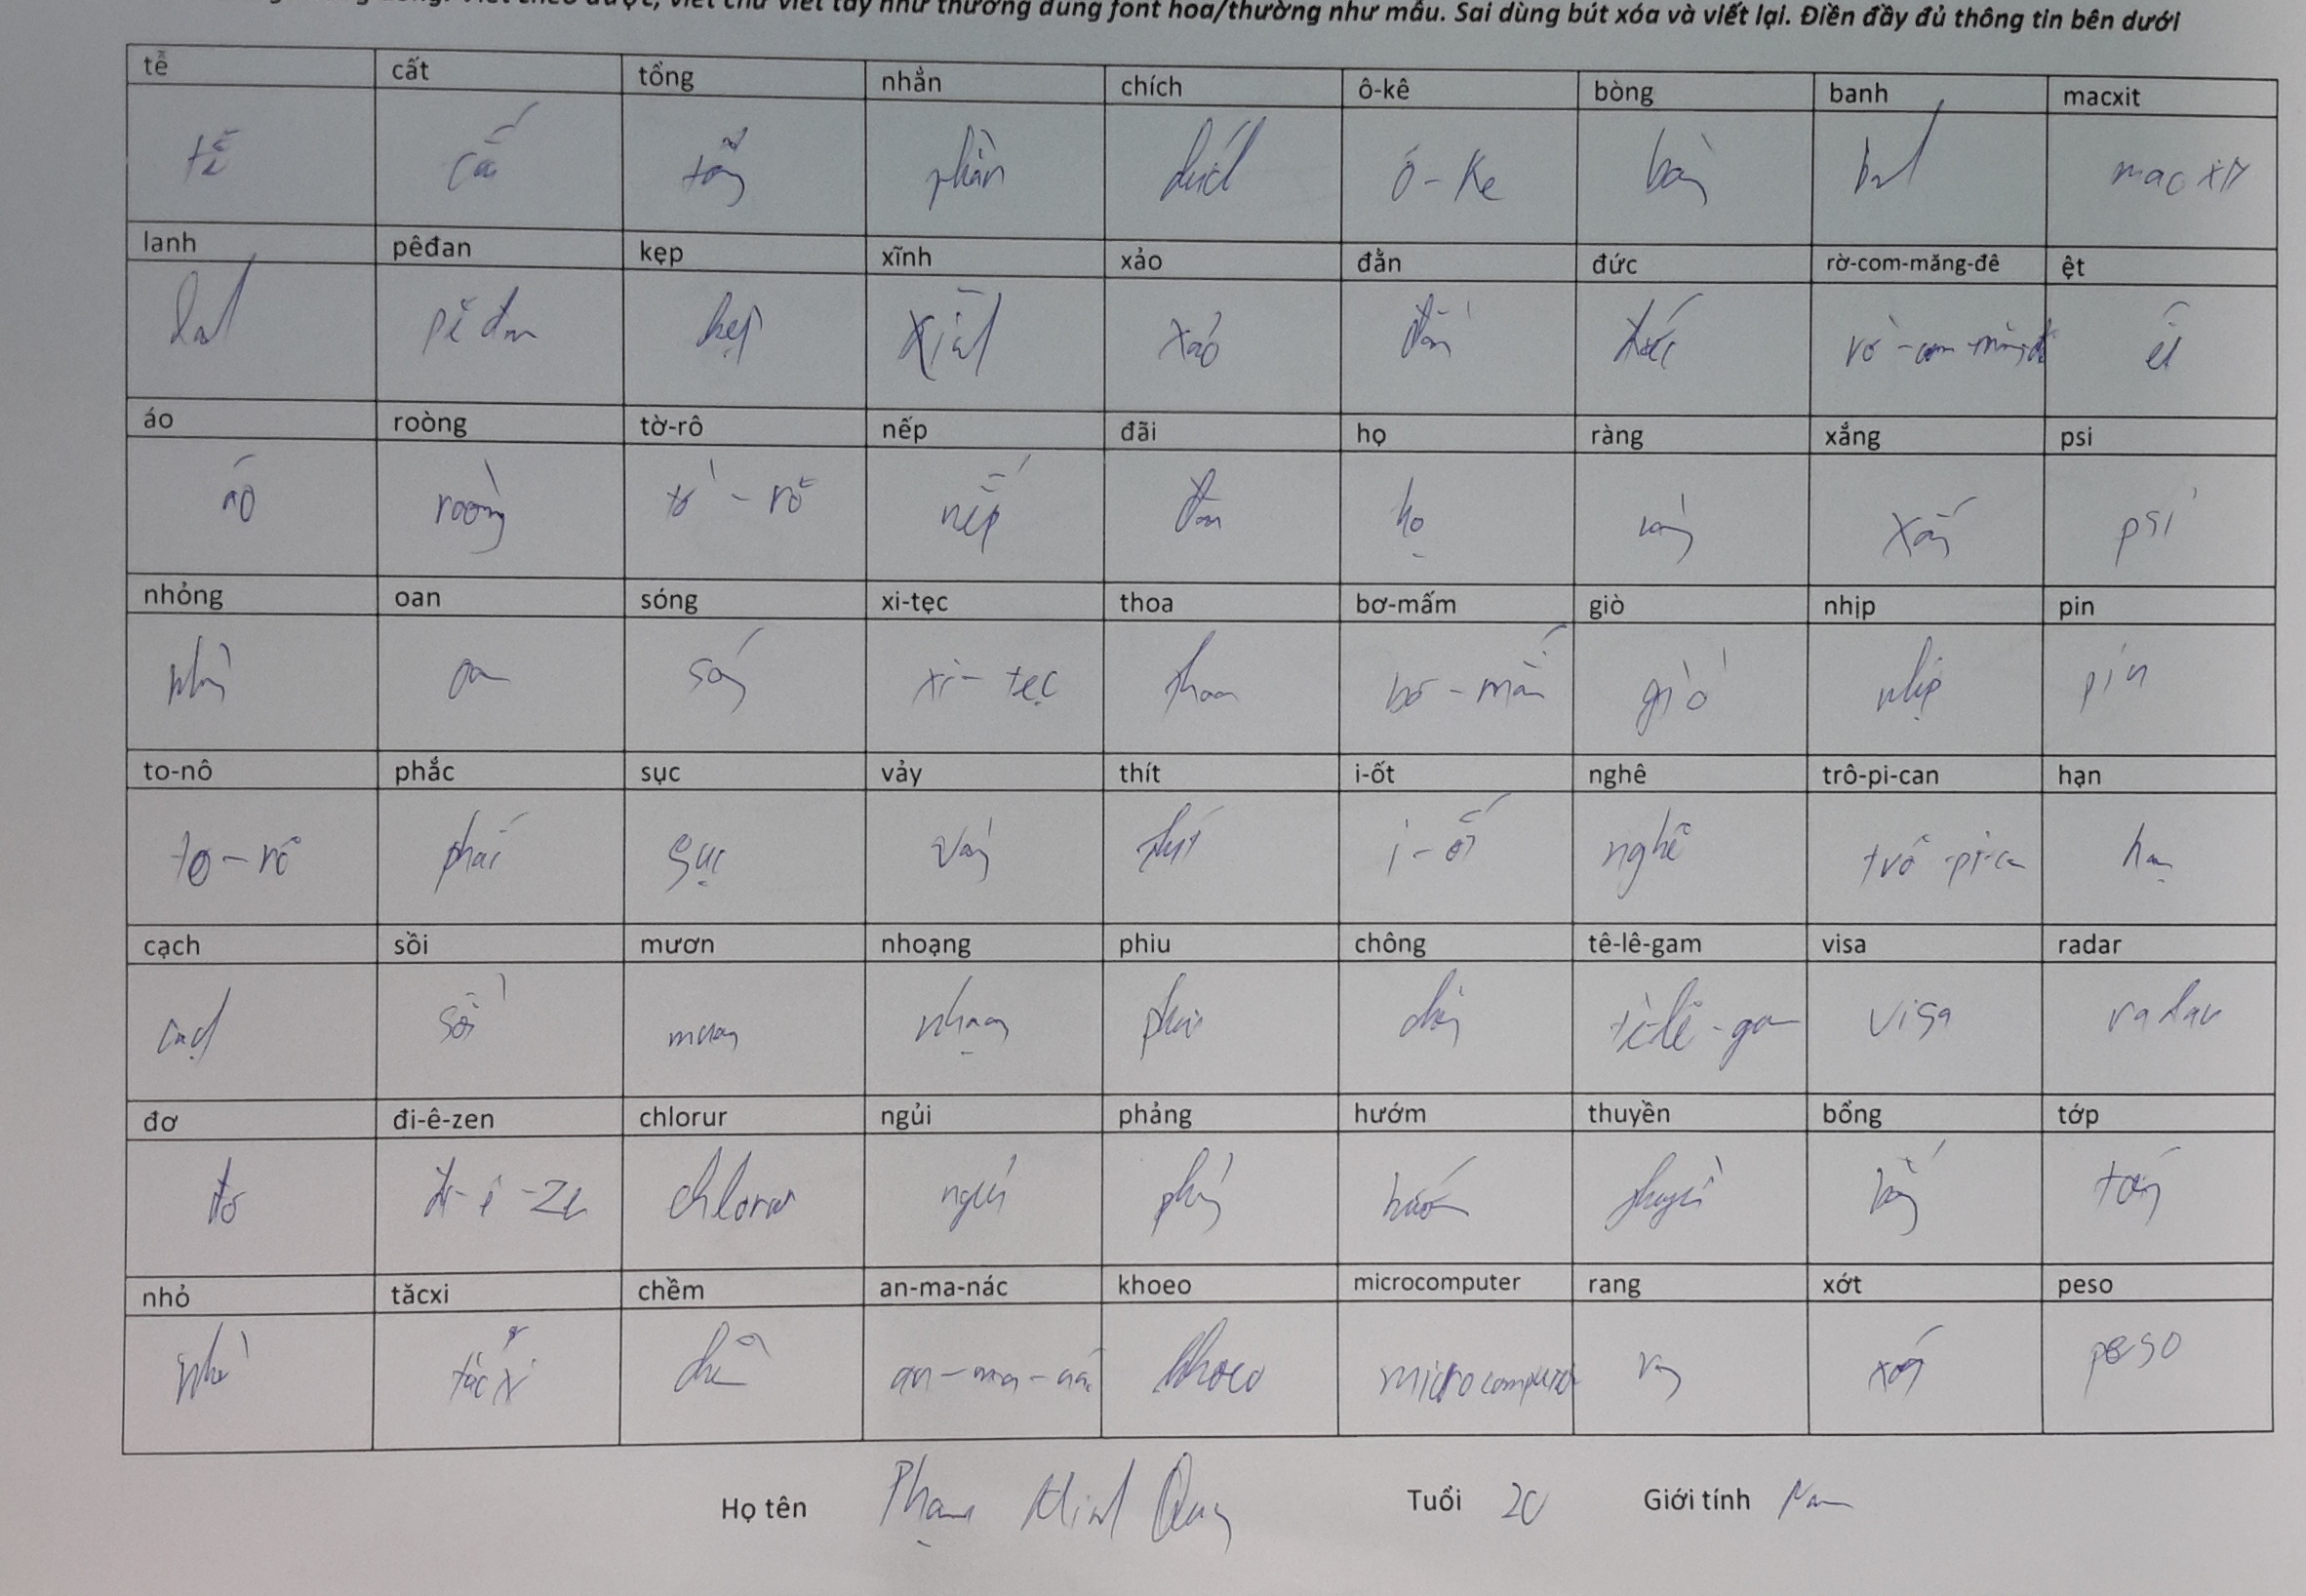 viết chữ viết tay như thường dùng font hoa/thường như mẫu. Sai dùng bút xóa và viết lại. Điền đầy đủ thông tin bên dưới
tễ cất tổng nhằn chích ô-kê bòng banh macxit
tễ cất tổng nhằn chích ô-kê bòng banh macxit
lanh pêđan kẹp xĩnh xảo đằn đức rờ-com-măng-đê ệt
lanh pêđan kẹp xĩnh xảo đằn đức rờ-com-măng-đê
áo roòng tờ-rô nếp đãi họ ràng xắng psi
áo roòng tờ-rô nếp họ ràng xắng psi
nhỏng oan sóng xi-tẹc thoa bơ-mấm giò nhịp pin
oan sóng xi-tẹc thoa bơ-mấm giò nhịp pin
to-nô phắc sục vảy thít i-ốt nghê trô-pi-can hạn
phắc sục vảy thít i-ốt nghê trô-pi-can hạn
cạch sồi mươn nhoạng phiu chông tê-lê-gam visa radar
cạch sồi mươn phiu chông tê-lê-gam visa radar
đơ đi-ê-zen chlorur ngủi phảng hướm thuyền bổng tớp
đơ đi-ê-zen chlorur ngủi phảng hướm thuyền bổng tớp
nhỏ tăcxi chềm an-ma-nác khoeo microcomputer rang xớt peso
nhỏ tăcxi chềm an-ma-nác khoeo microcomputer rang xớt peso
Họ tên Phạm Minh Quang Tuổi 20 Giới tính Nam